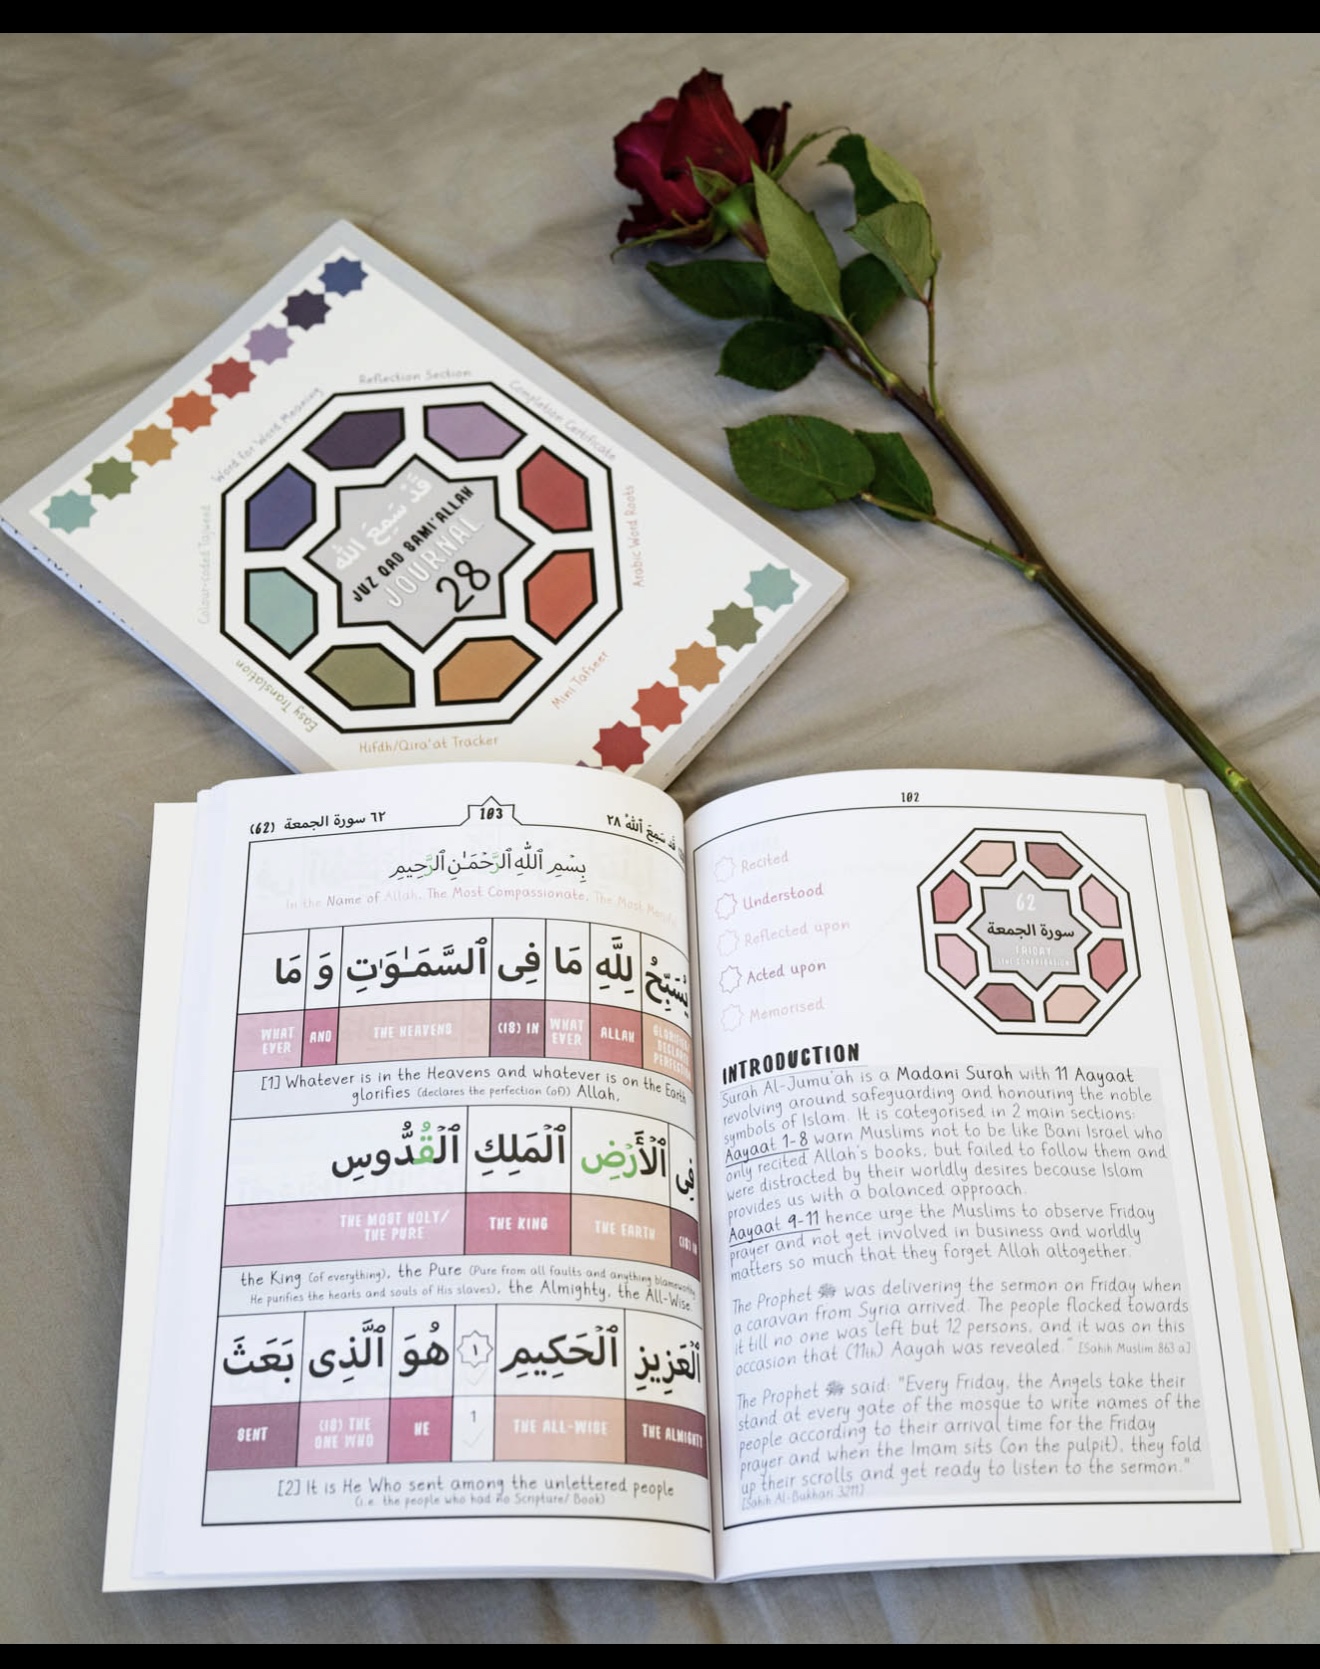 Reflection Section
Completion Certificate
Arabic Word Roots
Mini Tafseer
Hifdh/Qira'at Tracker
Easy Translation
Colour-coded Tajweed
Word for Word Meaning
قَدْ سَمِعَ الله
JUZ QAD SAMI'ALLAH
JOURNAL
28
(62) سورة الجمعة ٦٢
103
قَدْ سَمِعَ ٱللَّهُ ٢٨
بِسْمِ ٱللَّهِ ٱلرَّحْمَـٰنِ ٱلرَّحِيمِ
In the Name of Allah, The Most Compassionate, The Most Merciful
يُسَبِّحُ لِلَّهِ مَا فِى ٱلسَّمَـٰوَٰتِ وَ مَا
WHAT EVER AND THE HEAVENS (IS) IN WHAT EVER ALLAH
[1] Whatever is in the Heavens and whatever is on the Earth
glorifies (declares the perfection (of)) Allah,
فِى ٱلْأَرْضِ ٱلْمَلِكِ ٱلْقُدُّوسِ
THE MOST HOLY/ THE PURE THE KING THE EARTH (IS) IN
the King (of everything), the Pure (Pure from all faults and anything blameworthy
He purifies the hearts and souls of His slaves), the Almighty, the All-Wise.
ٱلْعَزِيزِ ٱلْحَكِيمِ ١ هُوَ ٱلَّذِى بَعَثَ
SENT (IS) THE ONE WHO HE 1 THE ALL-WISE THE ALMIGHTY
[2] It is He Who sent among the unlettered people
(i.e. the people who had no Scripture/ Book)
102
Recited
Understood
Reflected upon
Acted upon
Memorised
62
سورة الجمعة
FRIDAY
INTRODUCTION
Surah Al-Jumu'ah is a Madani Surah with 11 Aayaat
revolving around safeguarding and honouring the noble
symbols of Islam. It is categorised in 2 main sections:
Aayaat 1-8 warn Muslims not to be like Bani Israel who
only recited Allah's books, but failed to follow them and
were distracted by their worldly desires because Islam
provides us with a balanced approach.
Aayaat 9-11 hence urge the Muslims to observe Friday
prayer and not get involved in business and worldly
matters so much that they forget Allah altogether.
The Prophet ﷺ was delivering the sermon on Friday when
a caravan from Syria arrived. The people flocked towards
it till no one was left but 12 persons, and it was on this
occasion that (11th) Aayah was revealed." [Sahih Muslim 863 a]
The Prophet ﷺ said: "Every Friday, the Angels take their
stand at every gate of the mosque to write names of the
people according to their arrival time for the Friday
prayer and when the Imam sits (on the pulpit), they fold
up their scrolls and get ready to listen to the sermon."
[Sahih Al-Bukhari 3211]